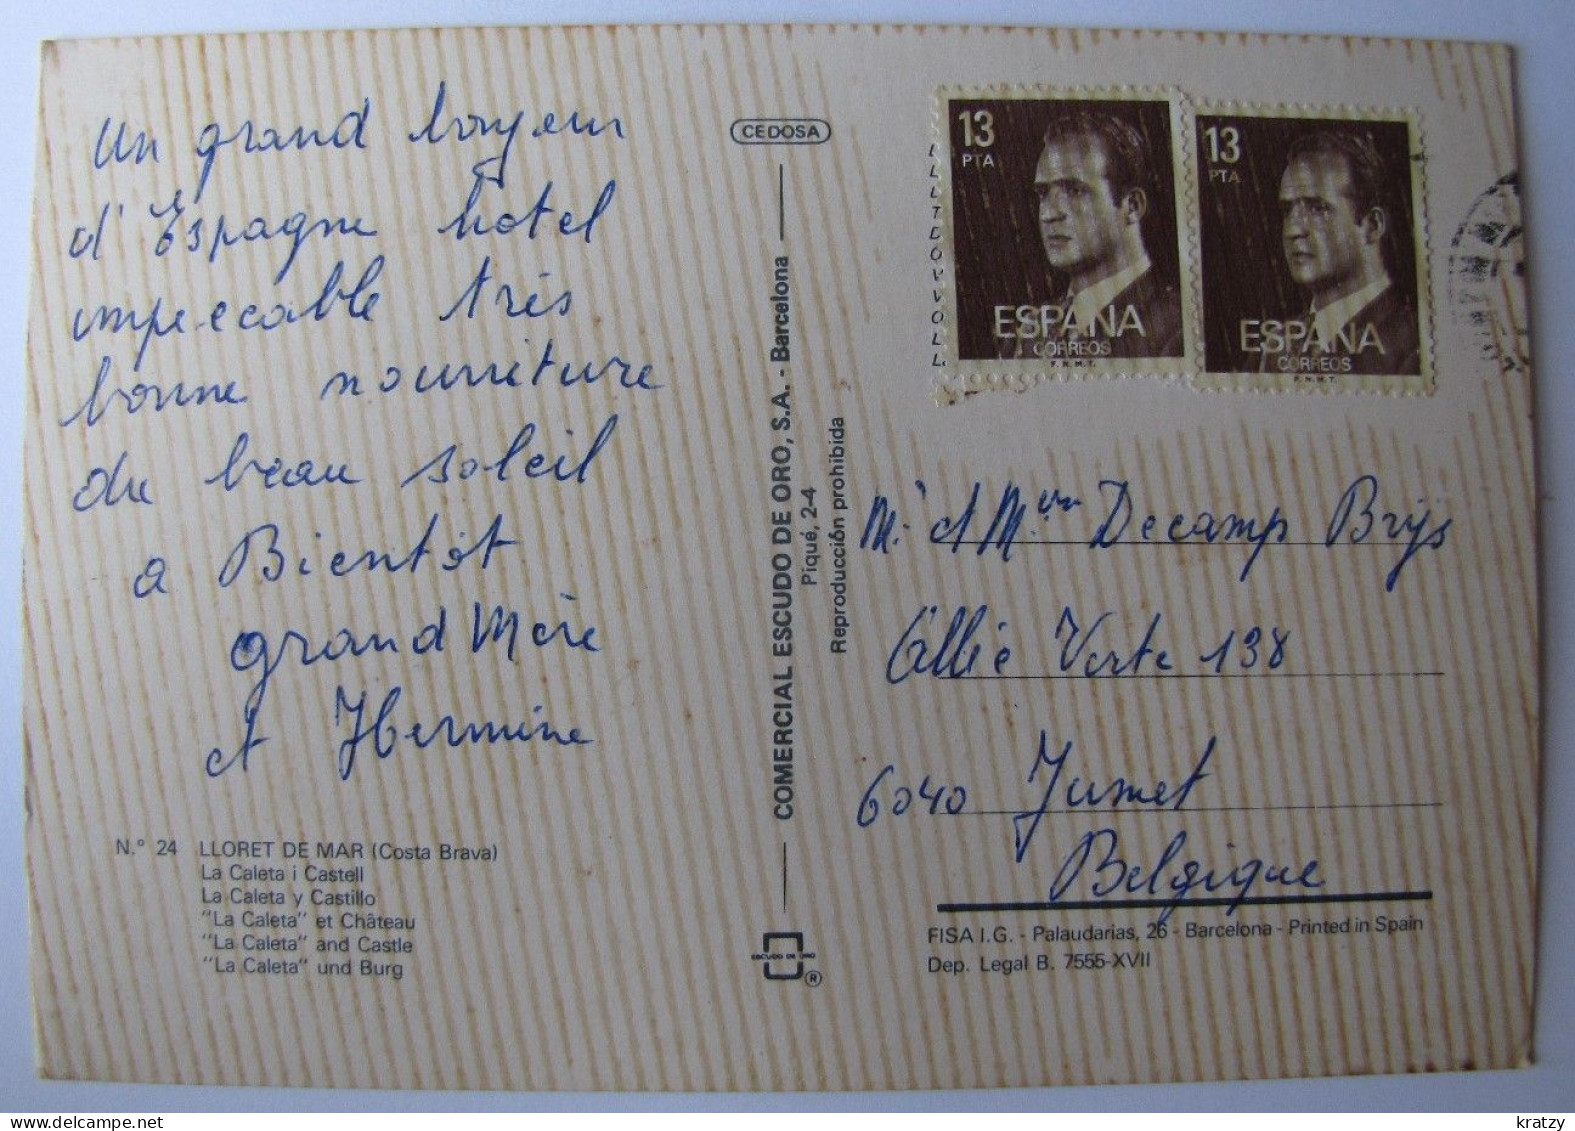 un grand bonjour
d'Espagne hotel
impeccable très
bonne nourriture
du beau soleil
a Bientôt
grand Mère
et Hermine
N.° 24 LLORET DE MAR (Costa Brava)
La Caleta i Castell
La Caleta y Castillo
"La Caleta" et Château
"La Caleta" and Castle
"La Caleta" und Burg
CEDOSA
COMERCIAL ESCUDO DE ORO, S.A. - Barcelona
Piqué, 2-4
Reproducción prohibida
ESCUDO DE ORO
®
13
PTA
ESPAÑA
CORREOS
F.N.M.T.
13
PTA
ESPAÑA
CORREOS
F.N.M.T.
M. et Mme Decamp Brijs
Allée Verte 138
6040 Jumet
Belgique
FISA I.G. - Palaudarias, 26 - Barcelona - Printed in Spain
Dep. Legal B. 7555-XVII
kratzy
www.delcampe.net